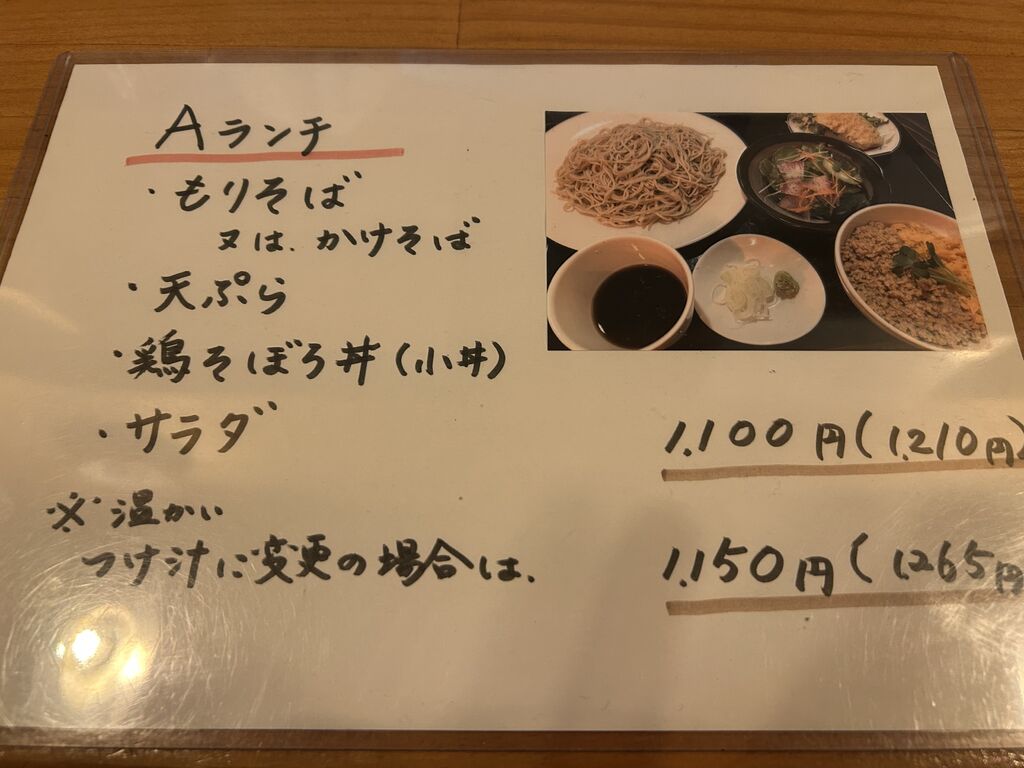 Aランチ
・もりそば
又は、かけそば
・天ぷら
・鶏そぼろ丼(小丼)
・サラダ
1,100円(1,210円)
※温かい
つけ汁に変更の場合は、
1,150円(1,265円